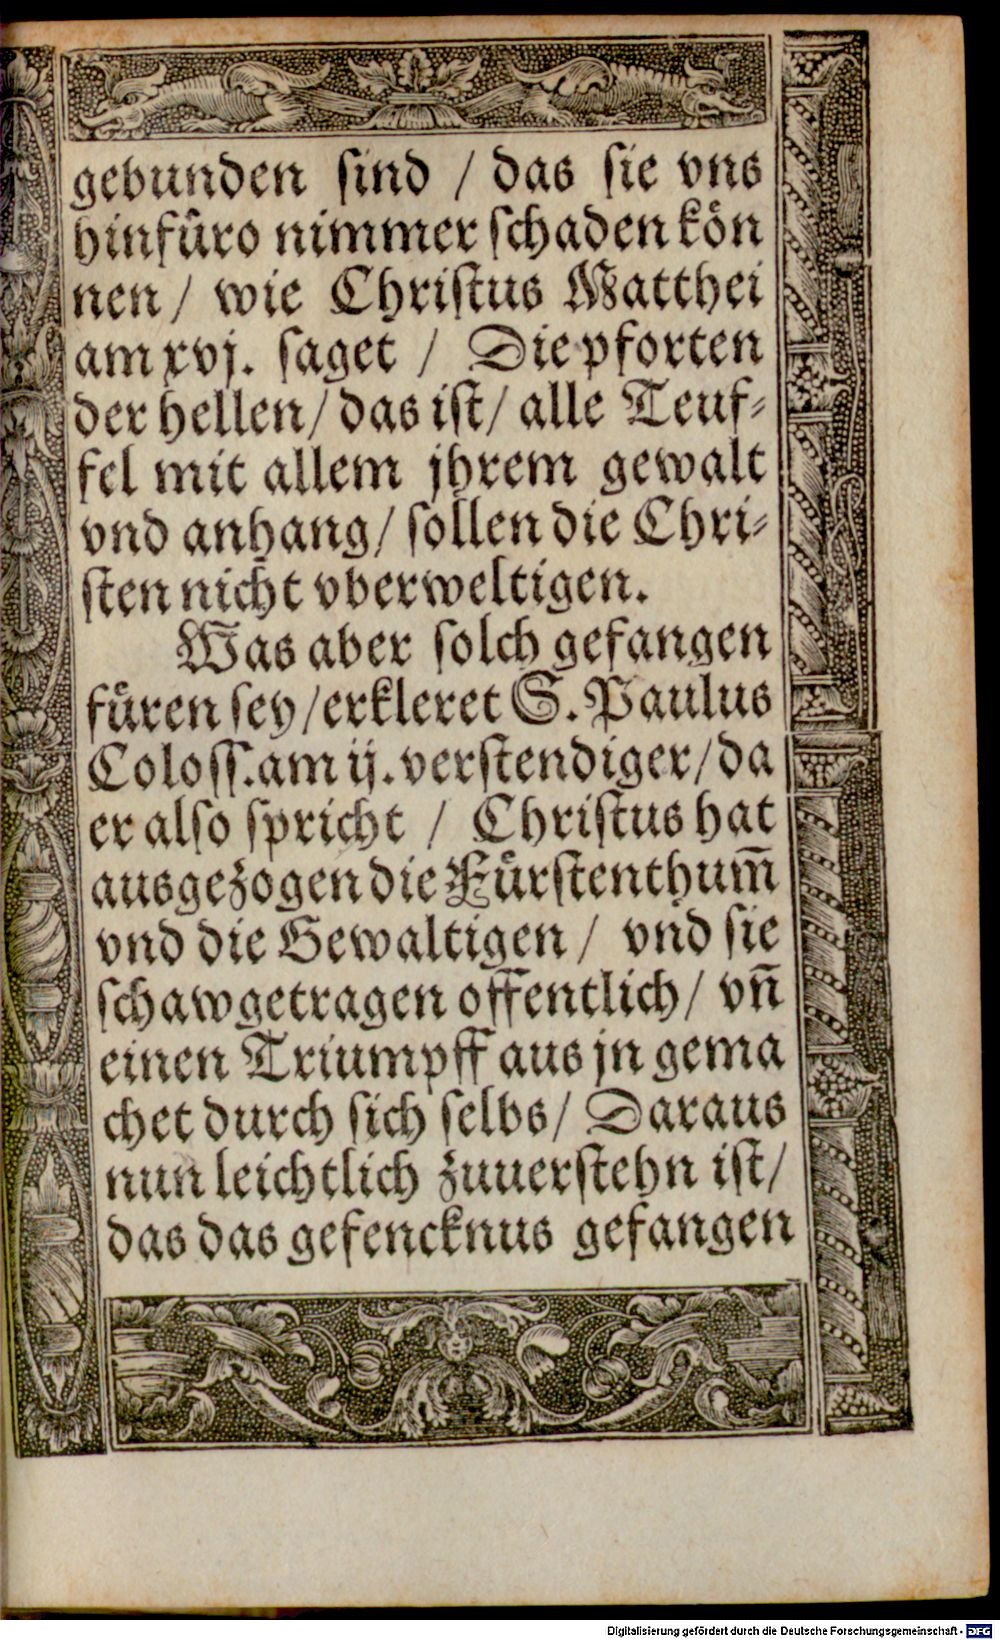 gebunden sind / das sie vns
hinfüro nimmer schaden kön
nen / wie Christus Matthei
am xvj. saget / Die pforten
der hellen / das ist / alle Teuf⸗
fel mit allem jhrem gewalt
vnd anhang / sollen die Chri⸗
sten nicht vberweltigen.
Was aber solch gefangen
füren sey / erkleret S. Paulus
Coloss. am ij. verstendiger / da
er also spricht / Christus hat
ausgezogen die Fürstenthum̄
vnd die Gewaltigen / vnd sie
schawgetragen offentlich / vn̄
einen Triumpff aus jn gema
chet durch sich selbs / Daraus
nun leichtlich zuuerstehn ist /
das das gefencknus gefangen
Digitalisierung gefördert durch die Deutsche Forschungsgemeinschaft - DFG